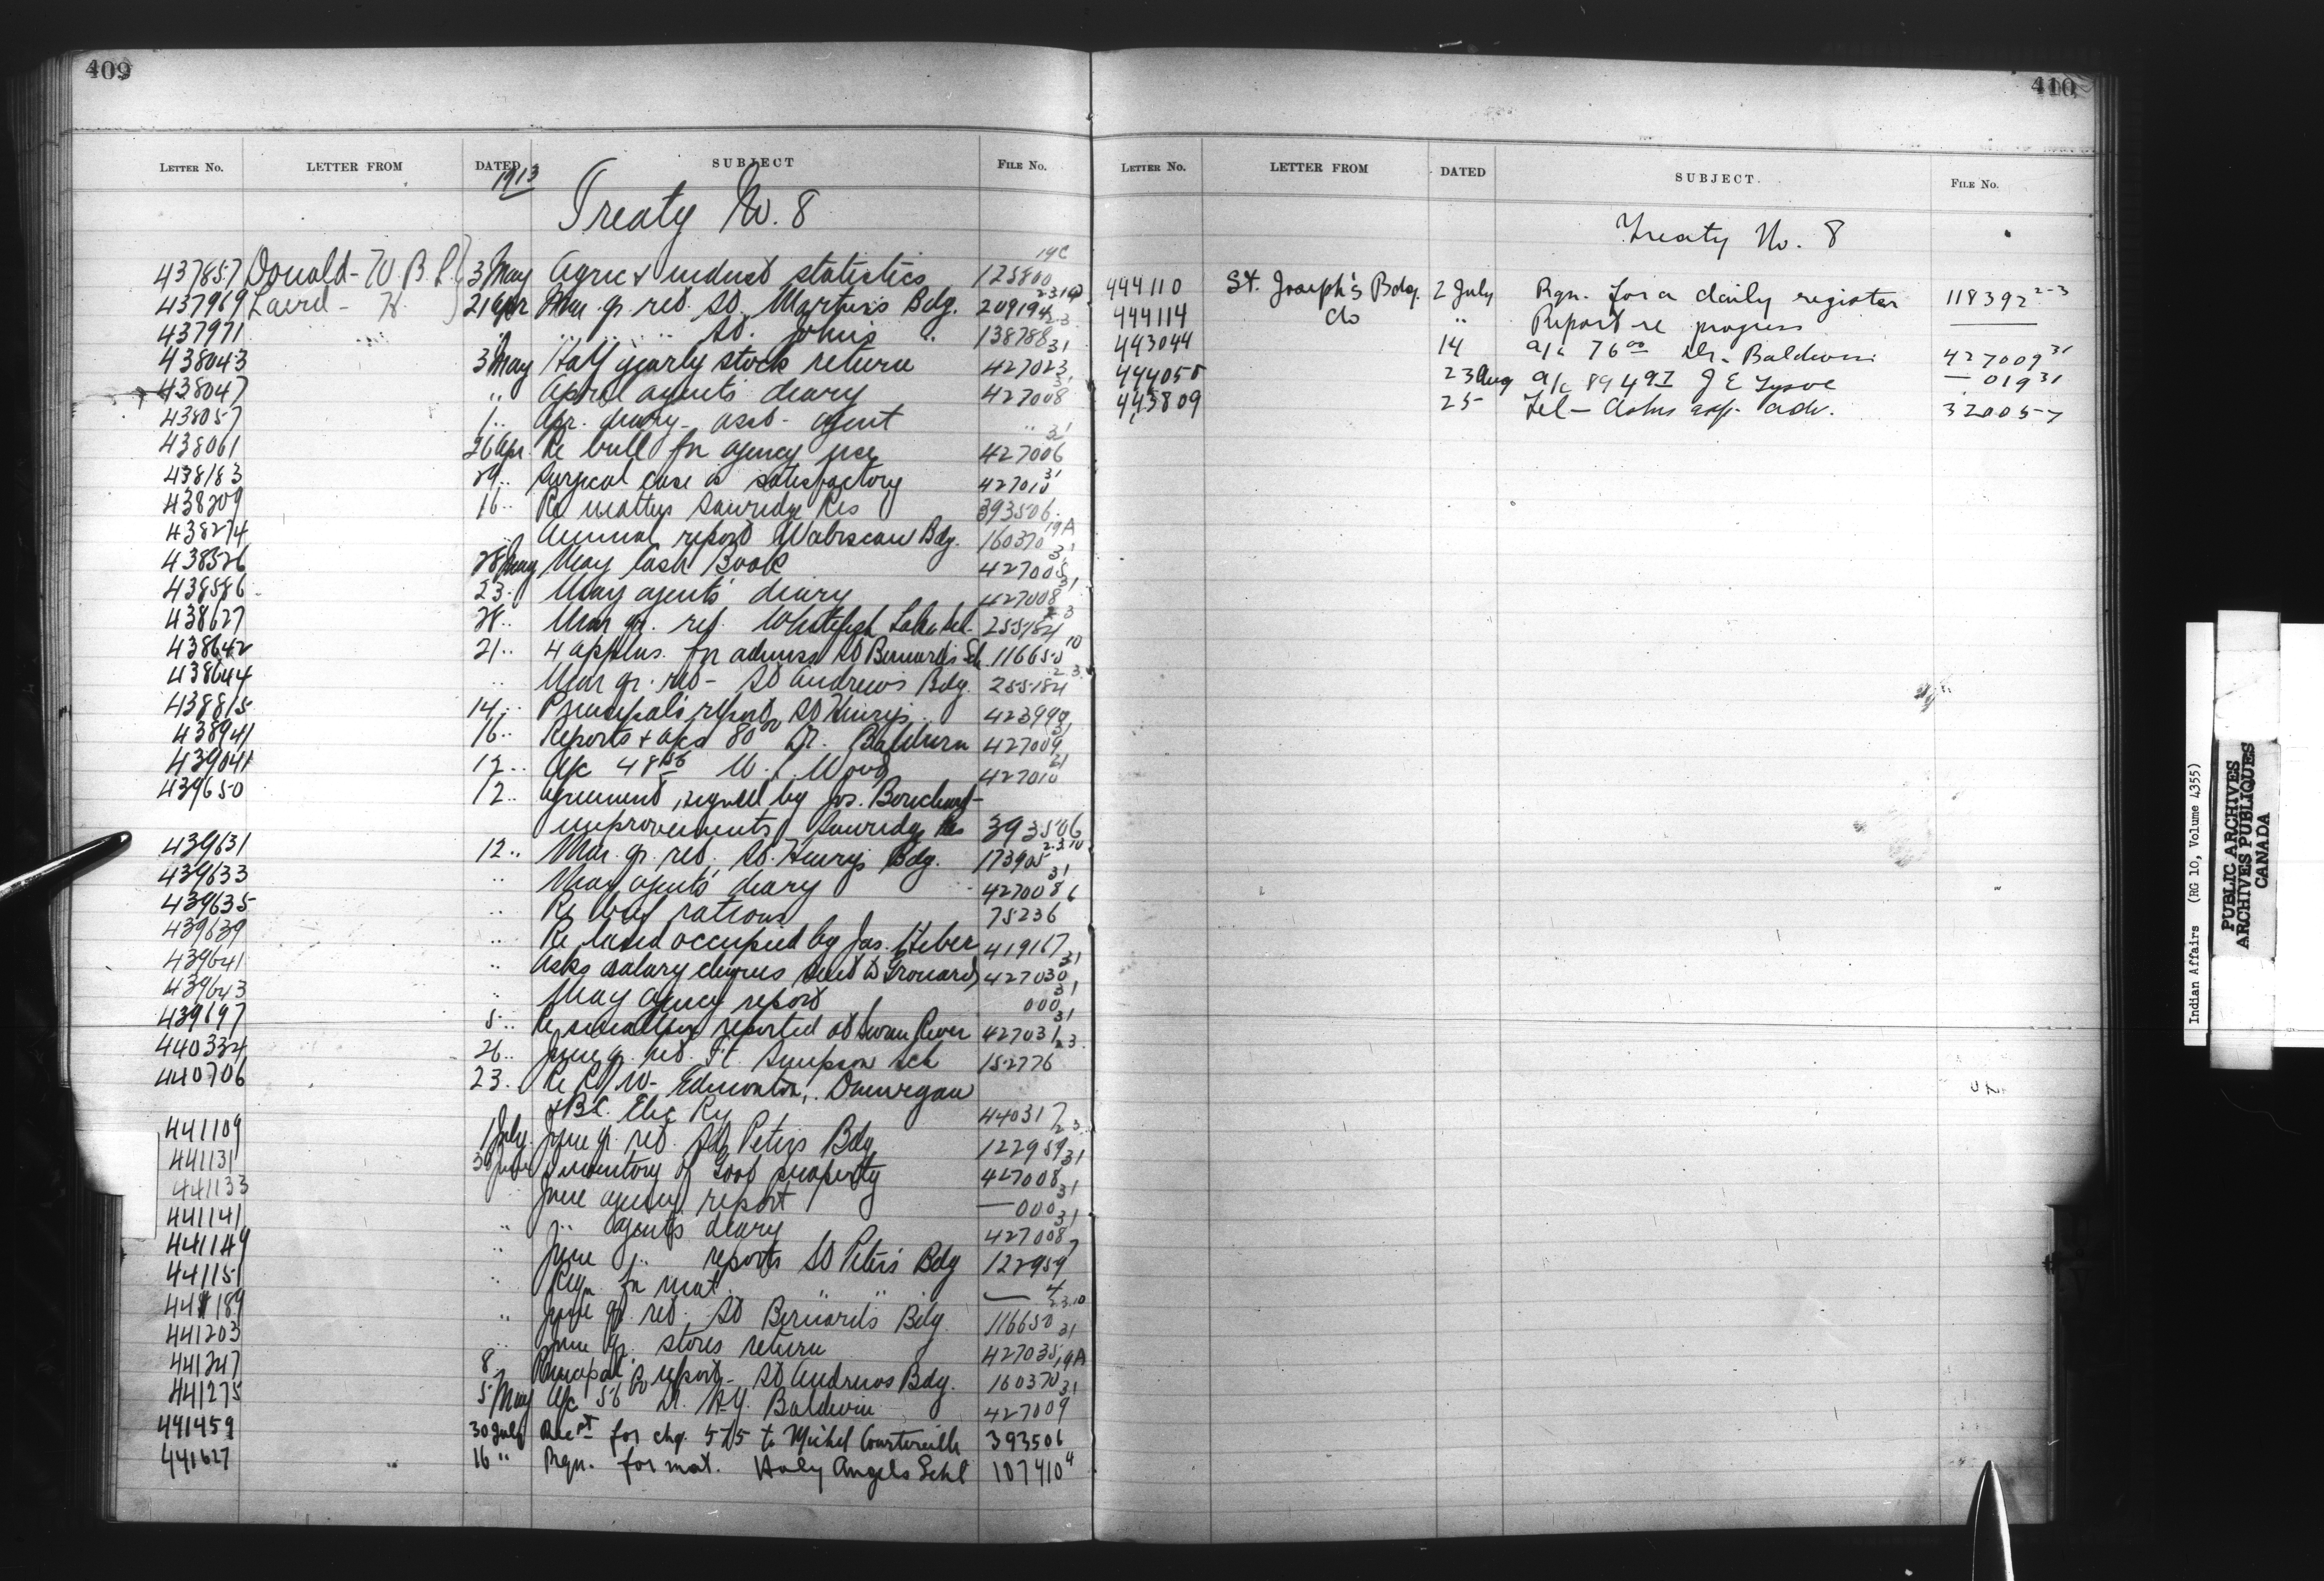 409
LETTER No. LETTER FROM DATED SUBJECT FILE No.
1913
Treaty No. 8
437857 Donald - W. B. L. 3 May Agric & indust statistics 125800 19C
437969 Laird - H. 21 Apr Mar. qr. ret. St. Martin's Bdg. 209194
437971 " " " " St. John's " 138788
438043 3 May Half yearly stock return 427023 31
438047 " April agents' diary 427008 31
438057 1 " Apr. diary - asst. agent "
438061 26 Apr. Re bull for agency use 427006 31
438183 29 " Surgical case is satisfactory 427010 31
438209 16 " Re matters Sawridge Res 393506
438274 " Annual report Wabiscaw Bdg. 160370 19A
438526 28 May May Cash Book 427005 31
438586 23 " May agents' diary 427008 31
438627 28 " Mar qr. ret. Whitefish Lake 255184 2-3
438642 21 " 4 applns. for admiss St Bernard's Sch. 116650 10
438644 " Mar qr. ret - St Andrew's Bdg. 255184 2-3
438815 14 " Principal's report St Henry's 423990
438941 16 " Reports + a/cs 80 00 Dr. Baldwin 427009 31
439041 12 " a/c 48 W. Wood 427010
439650 12 " Agreement, signed by Jos.
improvements, Sawridge Res 393506
439631 12 " Mar. qr. ret, St. Henry's Bdg. 173905 2.3.10
439633 " May agents' diary 427008 31
439635 " Re beef rations 75236
439639 " Re land occupied by Jas. Heber 419167
439641 " Asks salary cheques sent to Grouard 427030 31
439643 " May agency report 000 31
439697 5 " Re smallpox reported at Swan River 427031 31
440334 26 " June qr. ret. Ft. Simpson Sch 152776 2.3
440706 23 " Re R/W - Edmonton, Dunvegan
& B.C. Elec Ry 440317
441109 1 July June qr. ret. St Peter's Bdg 122959 2.3
441131 30 June Inventory of Govt property 427008 31
441133 " June agency report — 000 31
441141 " " agents diary 427008 31
441149 " June " reports St Peter's Bdg 122959 7
441151 " Reqn for mat. " " — 4
441189 " June qr. ret. St Bernard's Bdg 116650 2.3.10
441203 " June qr. stores return 427035 31
441247 8 " Principal's report - St Andrews Bdg. 160370 19A
441275 5 May a/c 56 00 Dr. A.Y. Baldwin 427009 31
441459 30 July Recpt for chq. 575 to Michel Courtoreille 393506
441627 16 " Rqn. for mat. Holy Angels Schl 107410 4
410
LETTER No. LETTER FROM DATED SUBJECT. FILE No.
Treaty No. 8
444110 St. Joseph's Bdg. 2 July Rqn. for a daily register 118392 2-3
444114 do " Report re progress ——
443044 14 a/c 76 00 Dr. Baldwin 427009 31
444055 23 Aug a/c 89 49 J E Tysoe — 019 31
443809 25 Tel - adv. 320057
Indian Affairs (RG 10, Volume 4355)
PUBLIC ARCHIVES
ARCHIVES PUBLIQUES
CANADA